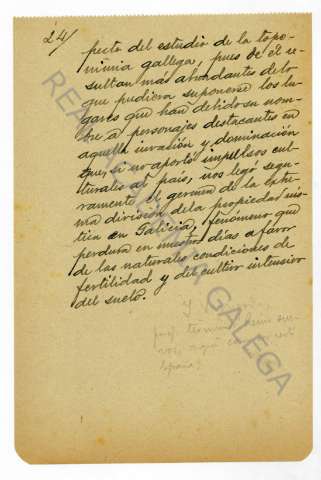 24/
pecto del estudio de la topo-
nimia gallega, pues de él re-
sultan más abundantes de lo
que pudiera suponerse los lu-
gares que han debido su nom-
bre a personajes destacantes en
aquella invasión y dominación
que, si no aportó impulsos cul-
turales al país, nos legó segu-
ramente el germen de la extre-
ma división de la propiedad rús-
tica en Galicia, fenómeno que
perdura en nuestros días a favor
de las naturales condiciones de
fertilidad y del cultivo intensivo
del suelo.
Y
España?
REAL ACADEMIA GALEGA